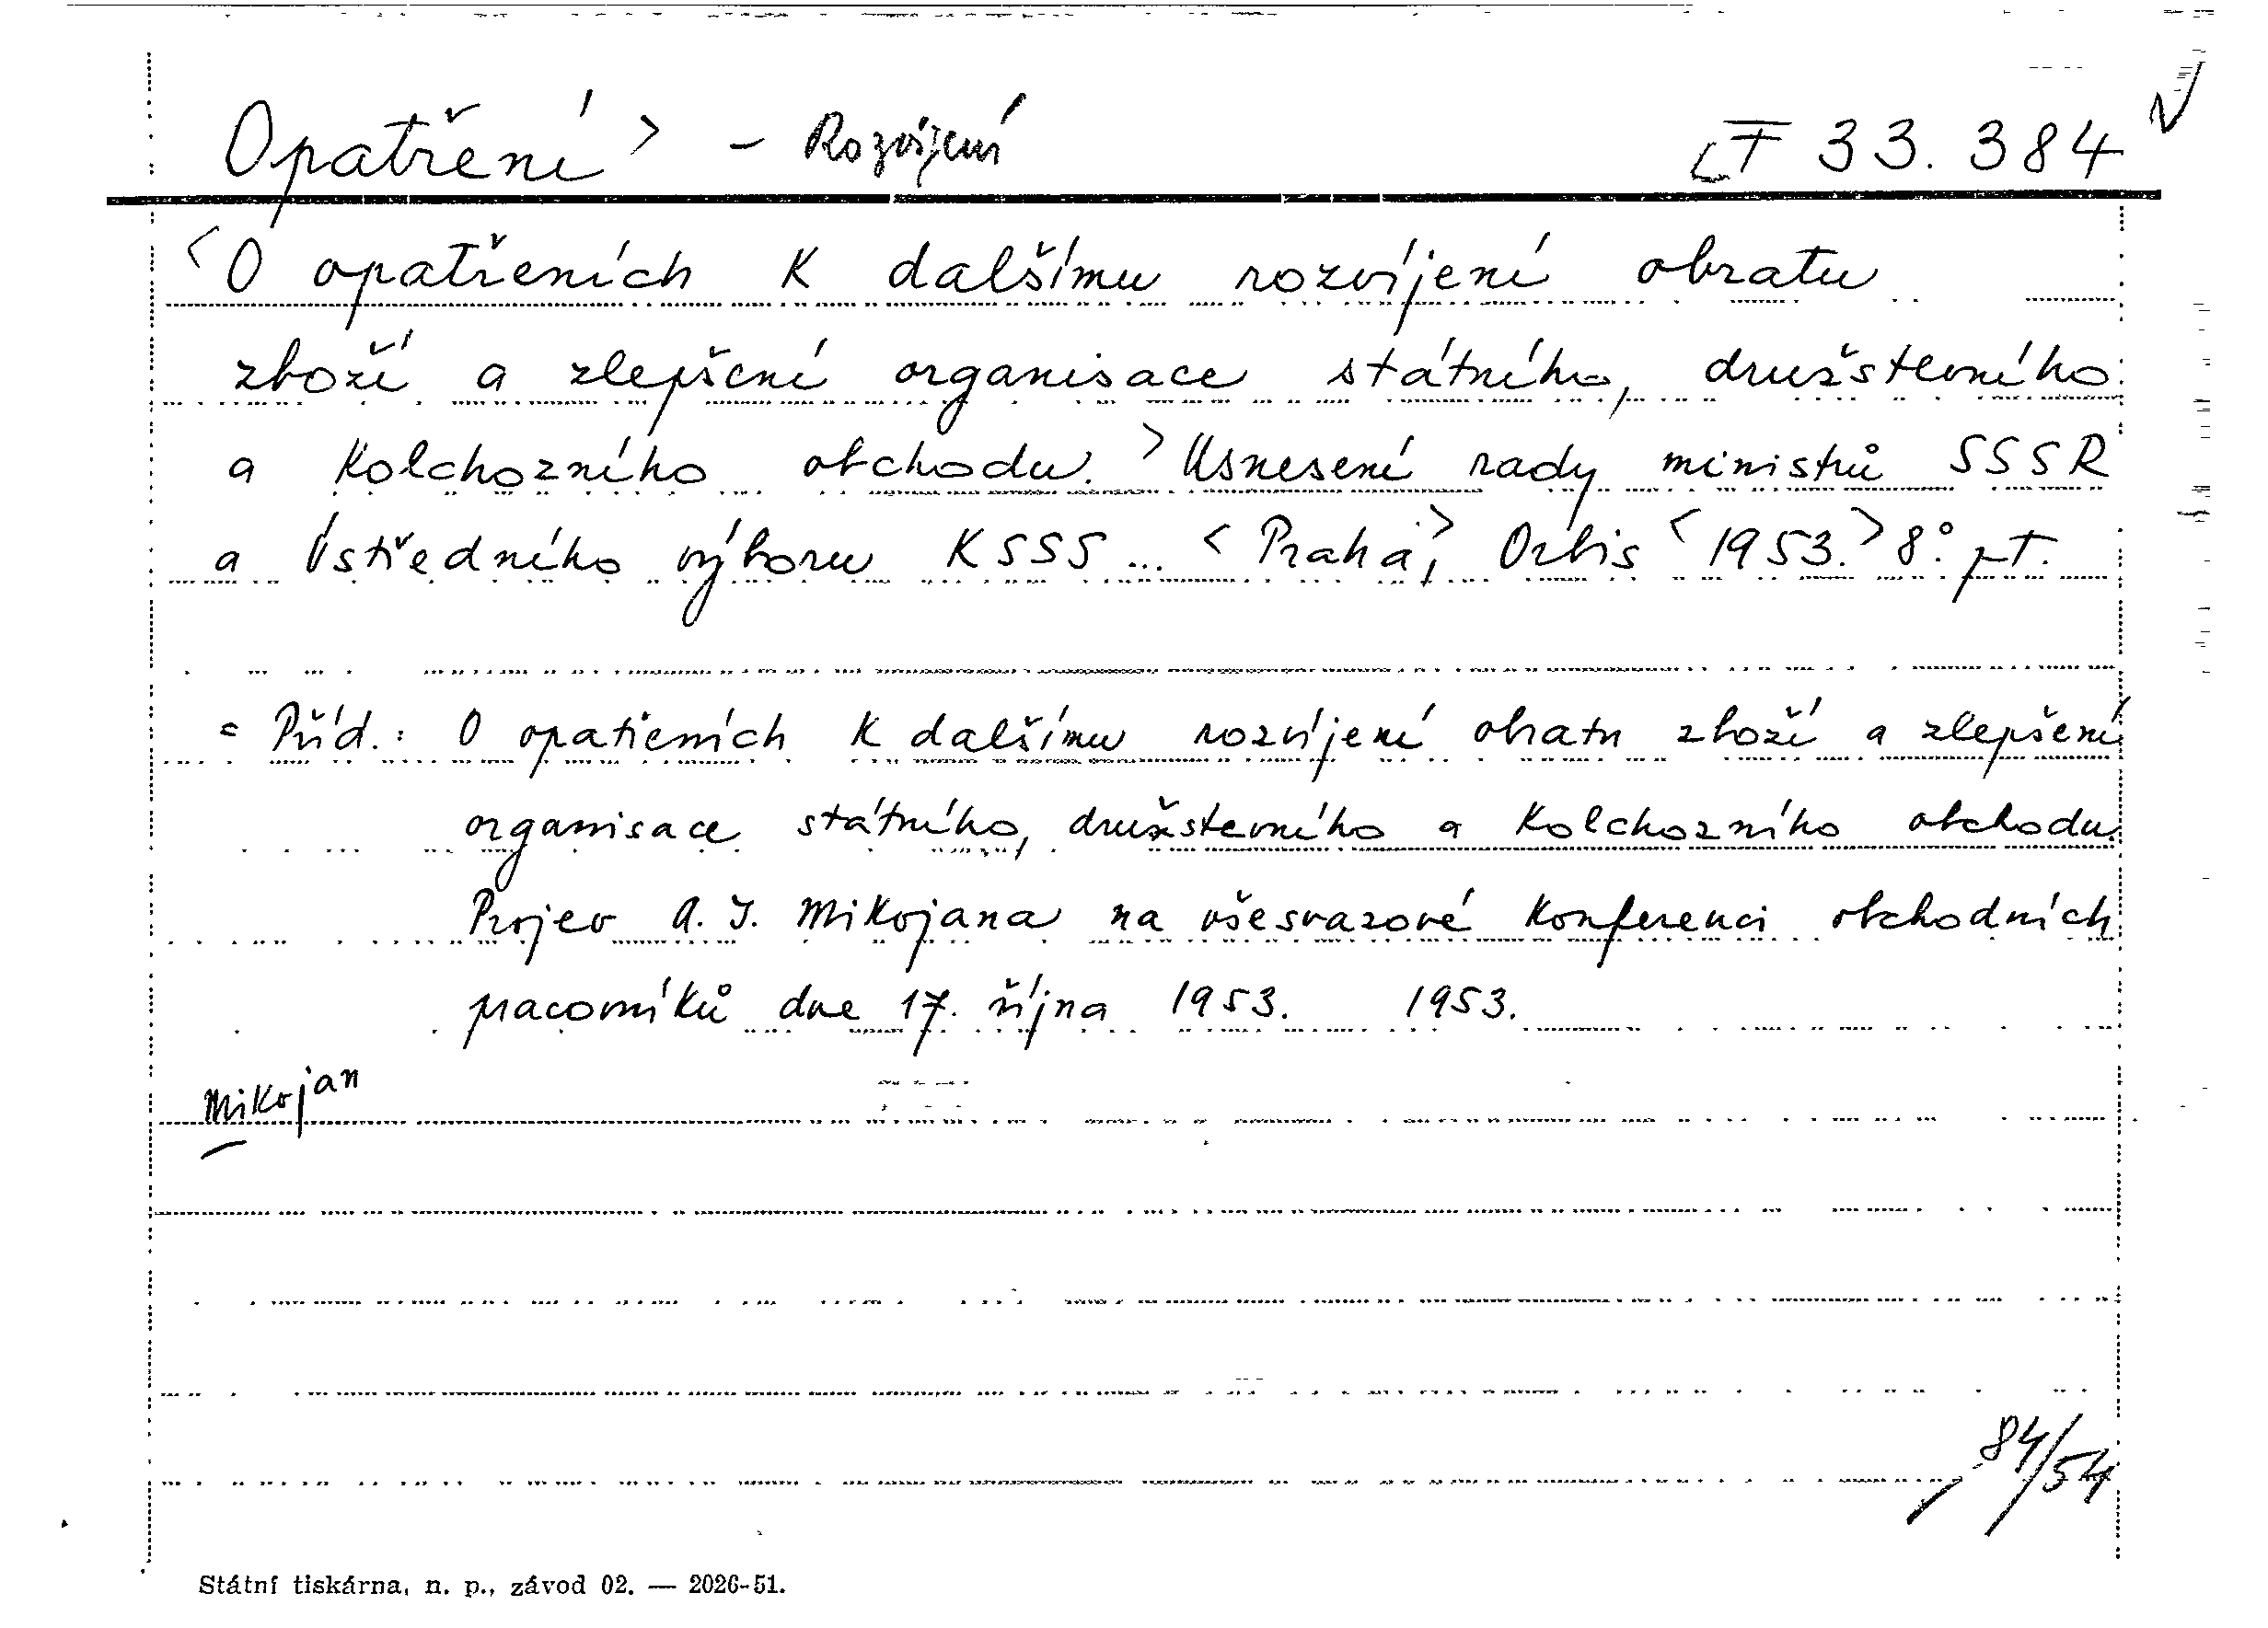 Opatření > - Rozvíjení T 33.384
<O opatřeních k dalšímu rozvíjení obratu
zboží a zlepšení organisace státního, družstevního
a kolchozního obchodu.> Usnesení rady ministrů SSSR
a Ústředního výboru KSSS ... <Praha,> Orbis <1953.> 8° pt.
= Příd.: O opatřeních k dalšímu rozvíjení obratu zboží a zlepšení
organisace státního, družstevního a kolchozního obchodu.
Projev A. I. Mikojana na všesvazové konferenci obchodních
pracovníků dne 17. října 1953. 1953.
Mikojan
84/54
Státní tiskárna, n. p., závod 02. — 2026-51.